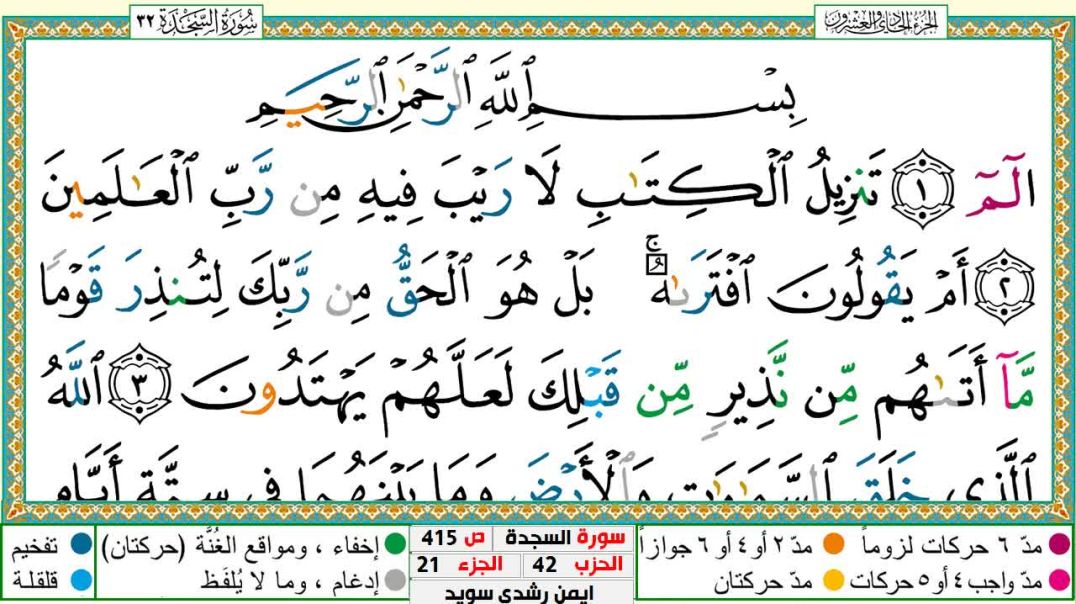 الجزء الحادي والعشرون
سُورَةُ السَّجْدَةِ ٣٢
بِسْمِ ٱللَّهِ ٱلرَّحْمَـٰنِ ٱلرَّحِيمِ
الٓمٓ ١ تَنزِيلُ ٱلْكِتَـٰبِ لَا رَيْبَ فِيهِ مِن رَّبِّ ٱلْعَـٰلَمِينَ
٢ أَمْ يَقُولُونَ ٱفْتَرَىٰهُ ۚ بَلْ هُوَ ٱلْحَقُّ مِن رَّبِّكَ لِتُنذِرَ قَوْمًا
مَّآ أَتَىٰهُم مِّن نَّذِيرٍ مِّن قَبْلِكَ لَعَلَّهُمْ يَهْتَدُونَ ٣ ٱللَّهُ
ٱلَّذِى خَلَقَ ٱلسَّمَـٰوَٰتِ وَٱلْأَرْضَ وَمَا بَيْنَهُمَا فِى سِتَّةِ أَيَّامٍ
مدّ ٦ حركات لزوماً
مدّ ٢ أو ٤ أو ٦ جوازاً
مدّ واجب ٤ أو ٥ حركات
مدّ حركتان
سورة السجدة ص 415
الحزب 42 الجزء 21
ايمن رشدي سويد
إخفاء ، ومواقع الغُنَّة (حركتان)
تفخيم
إدغام ، وما لا يُلفَظ
قلقلة